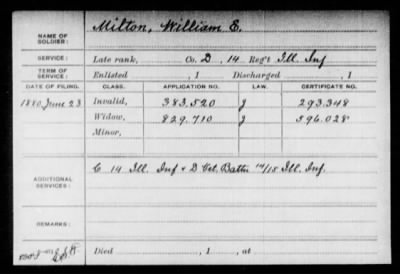 NAME OF SOLDIER: Milton, William E.
SERVICE: Late rank, Co. D, 14 Reg't Ill. Inf
TERM OF SERVICE: Enlisted , 1 Discharged , 1
DATE OF FILING. CLASS. APPLICATION NO. LAW. CERTIFICATE NO.
1880 June 23 Invalid, 383.520 J 293.348
Widow, 829.710 J 596.028
Minor,
ADDITIONAL SERVICES: C 14 Ill. Inf & D Vet. Battn 14/15 Ill. Inf.
REMARKS:
Died , 1 , at